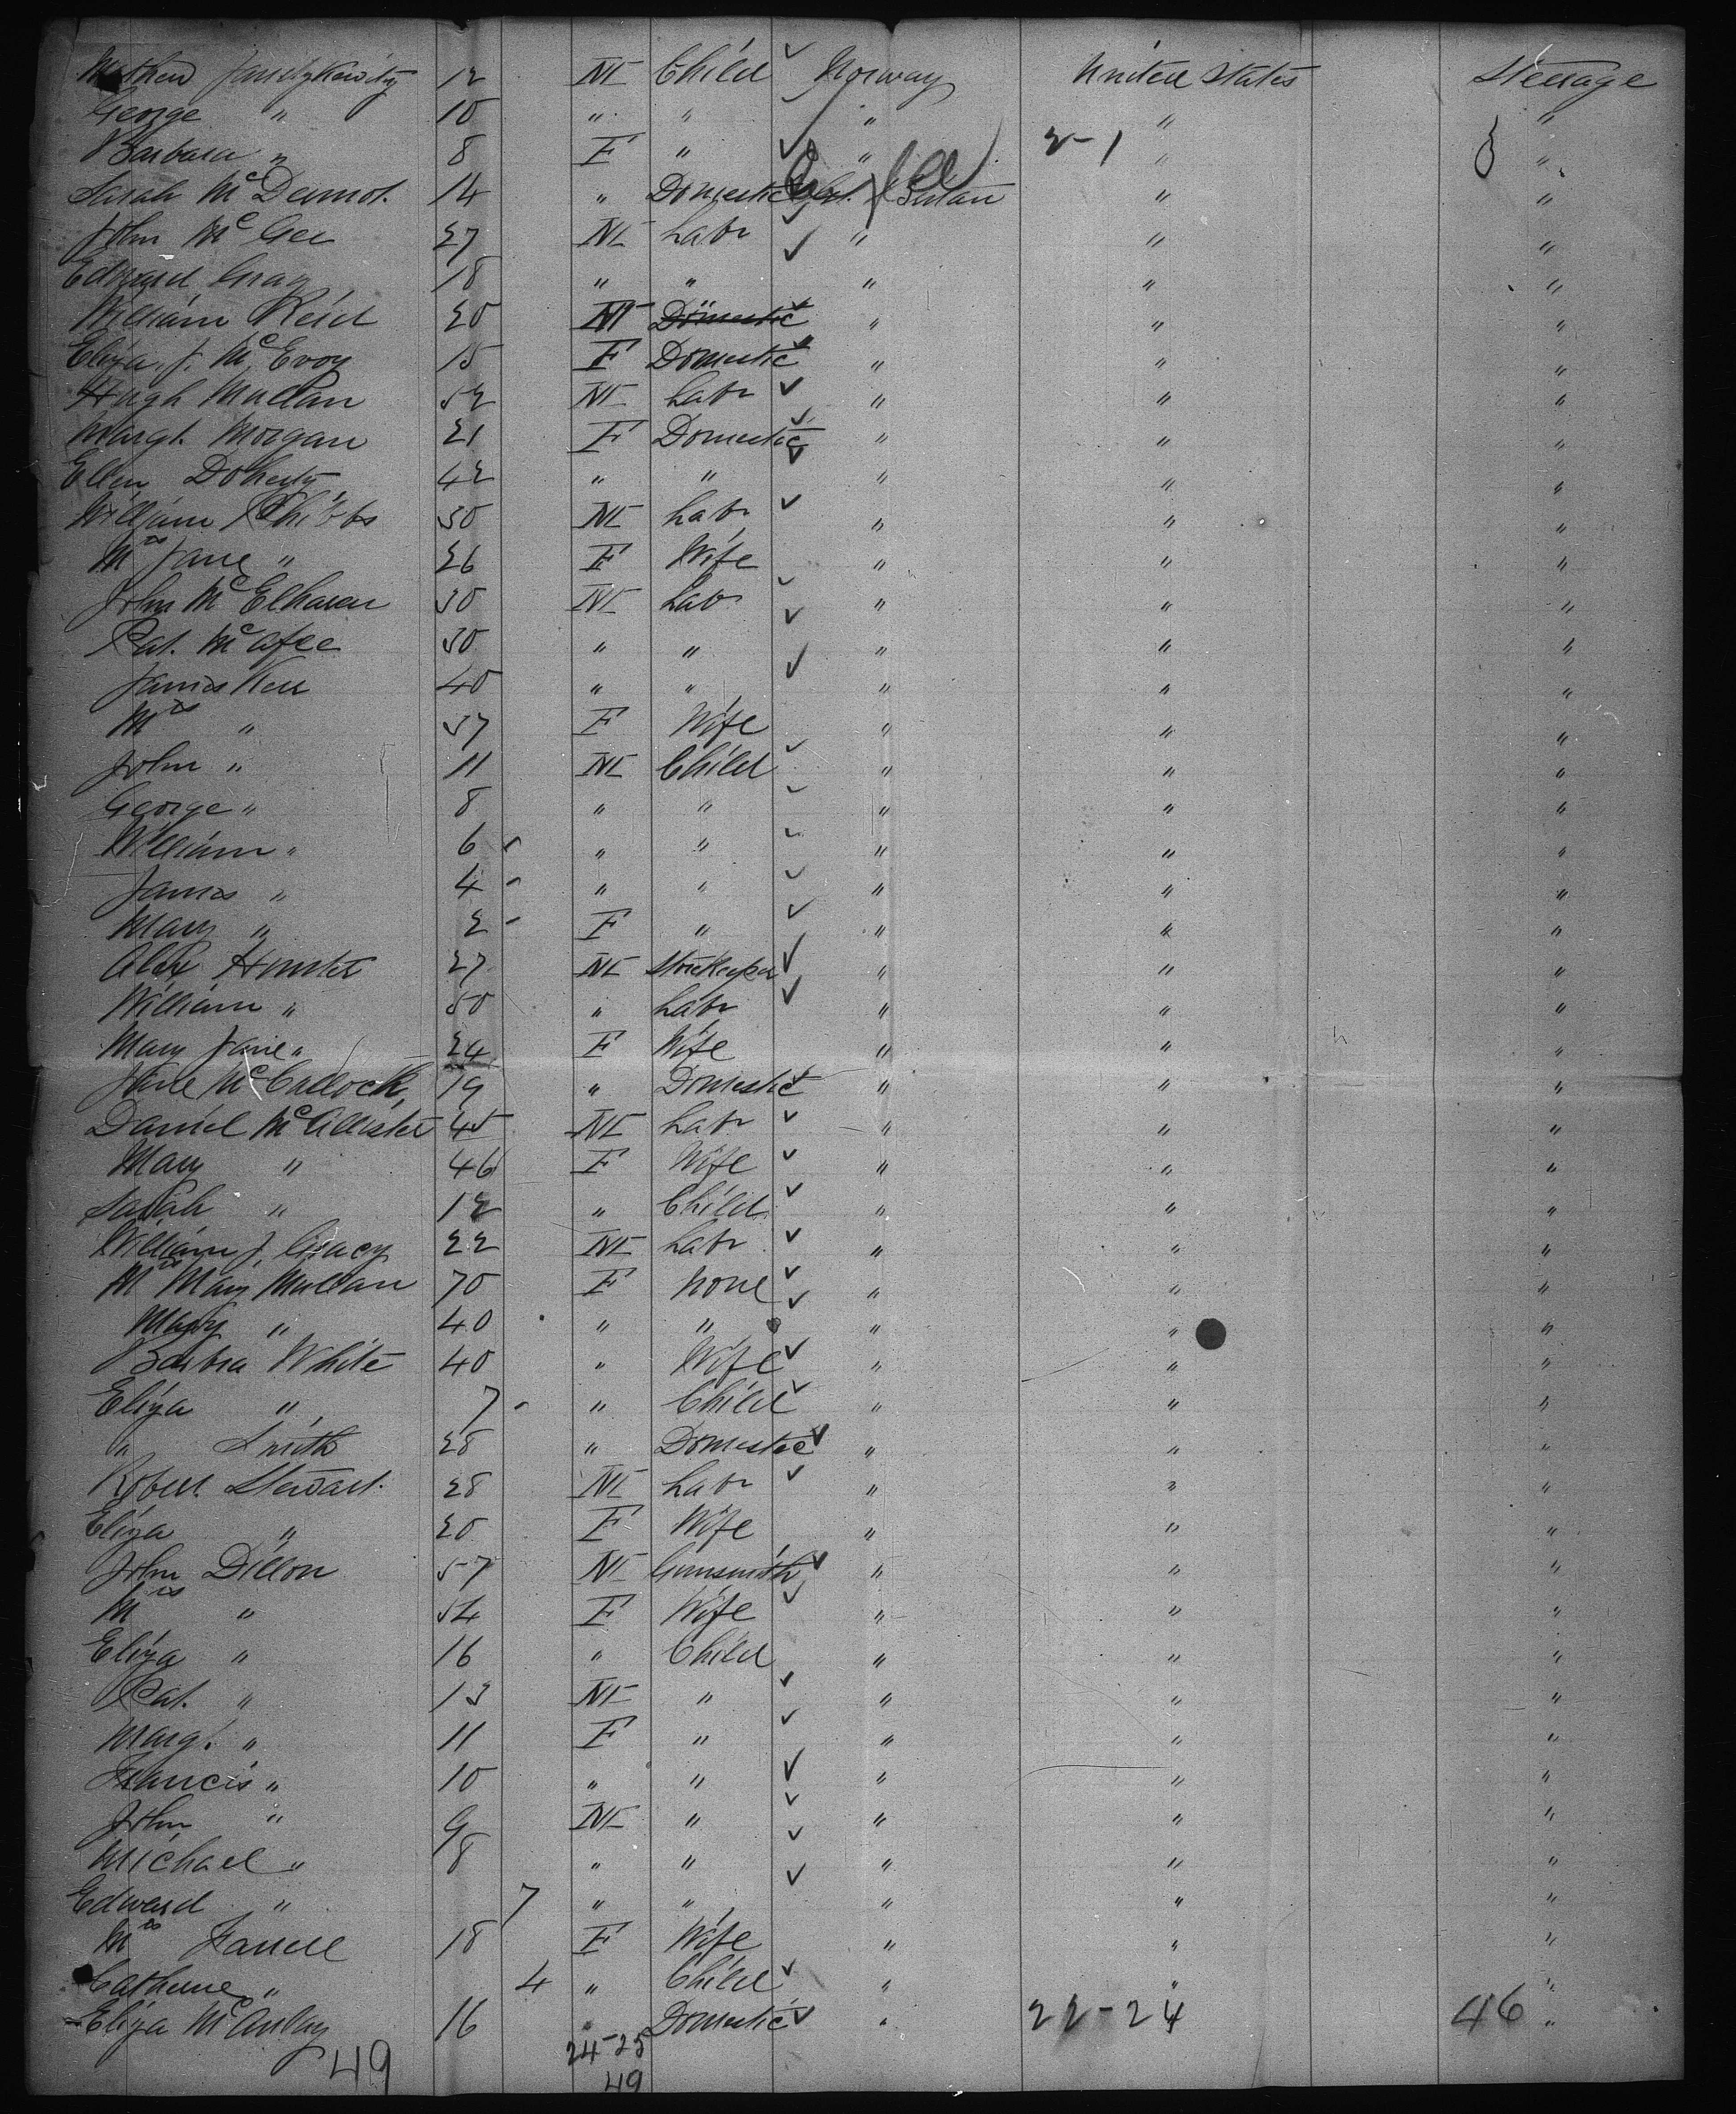 Child Norway United States Steerage
George " 10 " " " " "
Barbara " 8 F " " 2-1 " 3 "
Sarah McDermot. 14 " Domestic Gt. Britain " "
John McGee 27 M Labr " " "
Edward Gray 18 " " " " "
William Reid 20 M Domestic " " "
Eliza. J. McEvoy 15 F Domestic " " "
Hugh Mullan 52 M Labr " " "
Margt. Morgan 21 F Domestic " " "
Ellen Doherty 42 " " " " "
William Phibbs 30 M Labr " " "
Mrs Jane " 26 F Wife " " "
John McElharen 30 M Labr " " "
Pat. McAfee 30 " " " " "
James Kerr 40 " " " " "
Mrs " 37 F Wife " " "
John " 11 M Child " " "
George " 8 " " " " "
William " 6 " " " " "
James " 4 " " " " "
Mary " 2 F " " " "
Alex Hunter 27 M Storekeeper " " "
William " 30 " Labr " " "
Mary Jane " 24 F Wife " " "
Jane McCullock, 19 " Domestic " " "
Daniel McAllister 45 M Labr " " "
Mary " 46 F Wife " " "
Sarah " 12 " Child " " "
William J. Gracey 22 M Labr " " "
Mrs Mary Mullan 70 F None " " "
Mary " 40 " " " " "
Barbra White 40 " Wife " " "
Eliza " 7 " Child " " "
" Smith 28 " Domestic " " "
Robert Stewart. 28 M Labr " " "
Eliza " 20 F Wife " " "
John Dillon 57 M Gunsmith " " "
Mrs " 54 F Wife " " "
Eliza " 16 " Child " " "
Pat. " 13 M " " " "
Margt. " 11 F " " " "
Francis " 10 " " " " "
John " 9 M " " " "
Michael " 8 " " " " "
Edward " 7 " " " " "
Mrs Farrell 18 F Wife " " "
Catherine " 4 " Child " " "
Eliza McAulay 16 " Domestic " 22-24 46 "
49 24-25
49